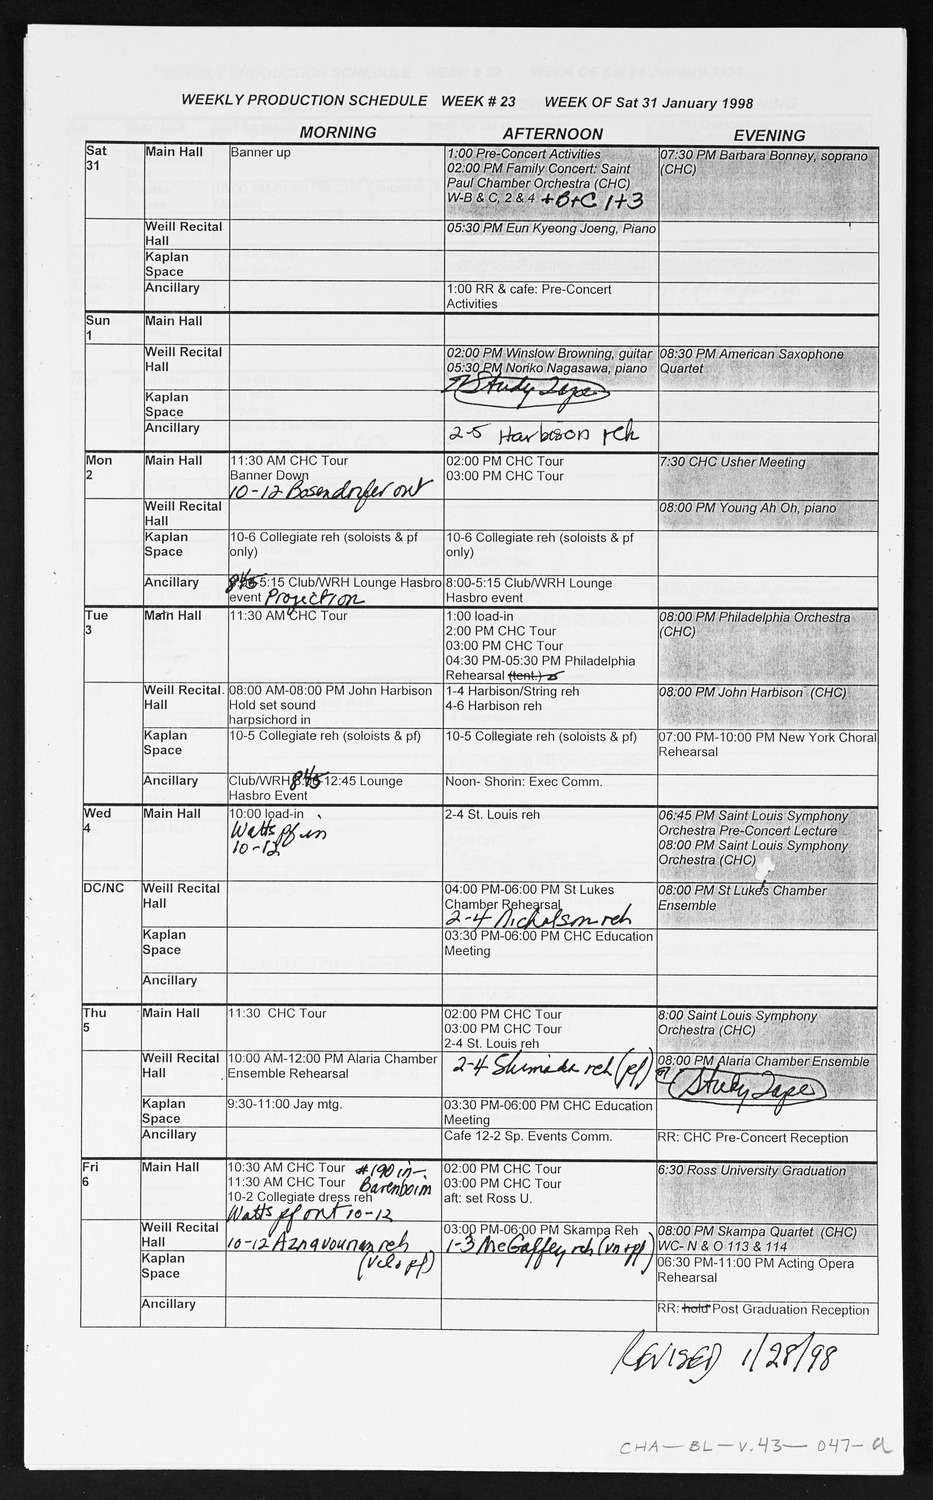 WEEKLY PRODUCTION SCHEDULE WEEK # 23 WEEK OF Sat 31 January 1998
MORNING AFTERNOON EVENING
Sat
31
Main Hall
Banner up
1:00 Pre-Concert Activities
02:00 PM Family Concert: Saint
Paul Chamber Orchestra (CHC)
W-B & C, 2 & 4 +B+C 1+3
07:30 PM Barbara Bonney, soprano
(CHC)
Weill Recital
Hall
05:30 PM Eun Kyeong Joeng, Piano
Kaplan
Space
Ancillary
1:00 RR & cafe: Pre-Concert
Activities
Sun
1
Main Hall
Weill Recital
Hall
02:00 PM Winslow Browning, guitar
05:30 PM Noriko Nagasawa, piano
Study Tape
08:30 PM American Saxophone
Quartet
Kaplan
Space
Ancillary
2-5 Harbison reh
Mon
2
Main Hall
11:30 AM CHC Tour
Banner Down
10-12 Bosendorfer out
02:00 PM CHC Tour
03:00 PM CHC Tour
7:30 CHC Usher Meeting
Weill Recital
Hall
08:00 PM Young Ah Oh, piano
Kaplan
Space
10-6 Collegiate reh (soloists & pf
only)
10-6 Collegiate reh (soloists & pf
only)
Ancillary
845 5:15 Club/WRH Lounge Hasbro
event Projection
8:00-5:15 Club/WRH Lounge
Hasbro event
Tue
3
Main Hall
11:30 AM CHC Tour
1:00 load-in
2:00 PM CHC Tour
03:00 PM CHC Tour
04:30 PM-05:30 PM Philadelphia
Rehearsal (tent.)
08:00 PM Philadelphia Orchestra
(CHC)
Weill Recital
Hall
08:00 AM-08:00 PM John Harbison
Hold set sound
harpsichord in
1-4 Harbison/String reh
4-6 Harbison reh
08:00 PM John Harbison (CHC)
Kaplan
Space
10-5 Collegiate reh (soloists & pf)
10-5 Collegiate reh (soloists & pf)
07:00 PM-10:00 PM New York Choral
Rehearsal
Ancillary
Club/WRH 845-12:45 Lounge
Hasbro Event
Noon- Shorin: Exec Comm.
Wed
4
Main Hall
10:00 load-in
Watts pf in
10-12
2-4 St. Louis reh
06:45 PM Saint Louis Symphony
Orchestra Pre-Concert Lecture
08:00 PM Saint Louis Symphony
Orchestra (CHC)
DC/NC
Weill Recital
Hall
04:00 PM-06:00 PM St Lukes
Chamber Rehearsal
2-4 Nicholson reh
08:00 PM St Luke's Chamber
Ensemble
Kaplan
Space
03:30 PM-06:00 PM CHC Education
Meeting
Ancillary
Thu
5
Main Hall
11:30 CHC Tour
02:00 PM CHC Tour
03:00 PM CHC Tour
2-4 St. Louis reh
8:00 Saint Louis Symphony
Orchestra (CHC)
Weill Recital
Hall
10:00 AM-12:00 PM Alaria Chamber
Ensemble Rehearsal
2-4 Shimada reh (pf)
08:00 PM Alaria Chamber Ensemble
Study Tape
Kaplan
Space
9:30-11:00 Jay mtg.
03:30 PM-06:00 PM CHC Education
Meeting
Ancillary
Cafe 12-2 Sp. Events Comm.
RR: CHC Pre-Concert Reception
Fri
6
Main Hall
10:30 AM CHC Tour #190 in-
11:30 AM CHC Tour Barenboim
10-2 Collegiate dress reh
Watts pf out 10-12
02:00 PM CHC Tour
03:00 PM CHC Tour
aft: set Ross U.
6:30 Ross University Graduation
Weill Recital
Hall
10-12 Aznavourian reh
(vcl+pf)
03:00 PM-06:00 PM Skampa Reh
1-3 McGaffey reh (vn+pf)
08:00 PM Skampa Quartet (CHC)
WC- N & O 113 & 114
Kaplan
Space
06:30 PM-11:00 PM Acting Opera
Rehearsal
Ancillary
RR: hold Post Graduation Reception
REVISED 1/28/98
CHA-BL-V.43-047-a